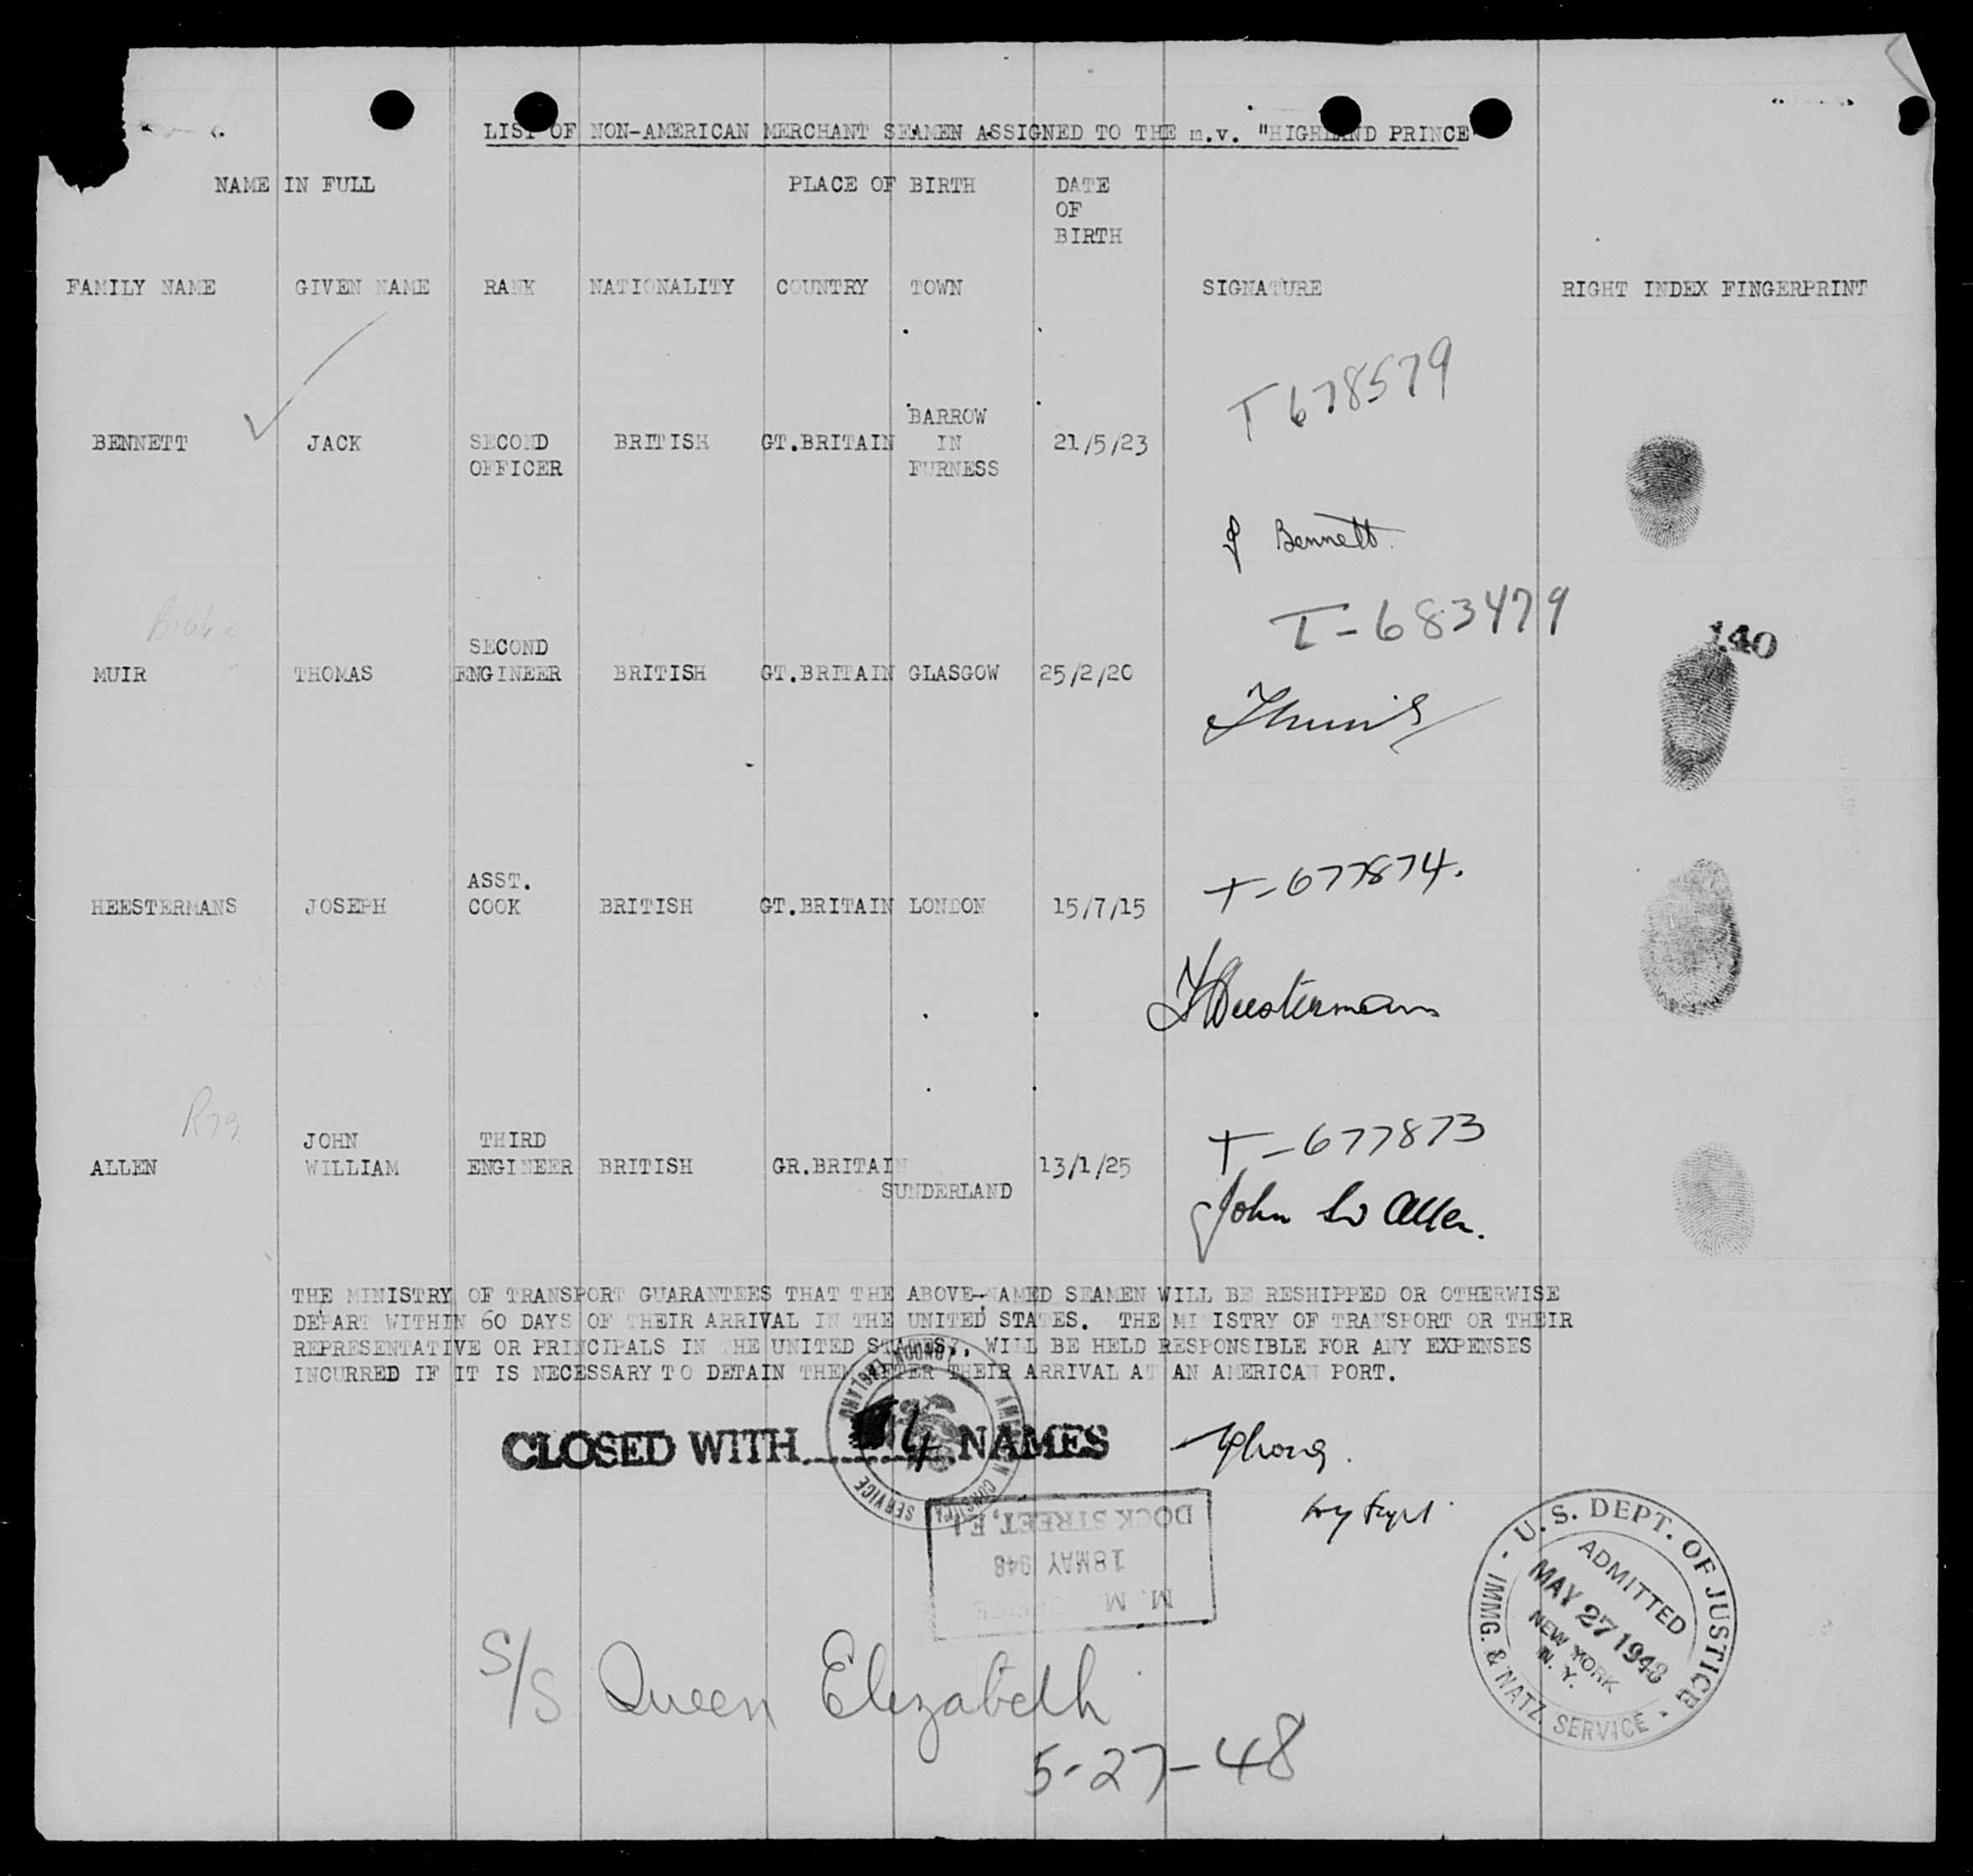 LIST OF NON-AMERICAN MERCHANT SEAMEN ASSIGNED TO THE m.v. "HIGHLAND PRINCE"
NAME IN FULL PLACE OF BIRTH DATE
OF
BIRTH
FAMILY NAME GIVEN NAME RANK NATIONALITY COUNTRY TOWN SIGNATURE RIGHT INDEX FINGERPRINT
T678579
BARROW
BENNETT JACK SECOND BRITISH GT.BRITAIN IN 21/5/23
OFFICER FURNESS
J Bennett.
T-683479
140
SECOND
MUIR THOMAS ENGINEER BRITISH GT.BRITAIN GLASGOW 25/2/20
TMuir
T-677874.
ASST.
HEESTERMANS JOSEPH COOK BRITISH GT.BRITAIN LONDON 15/7/15
JHeestermans
T-677873
JOHN THIRD
ALLEN WILLIAM ENGINEER BRITISH GR.BRITAIN 13/1/25
SUNDERLAND
John W Allen.
THE MINISTRY OF TRANSPORT GUARANTEES THAT THE ABOVE-NAMED SEAMEN WILL BE RESHIPPED OR OTHERWISE
DEPART WITHIN 60 DAYS OF THEIR ARRIVAL IN THE UNITED STATES. THE MINISTRY OF TRANSPORT OR THEIR
REPRESENTATIVE OR PRINCIPALS IN THE UNITED STATES, WILL BE HELD RESPONSIBLE FOR ANY EXPENSES
INCURRED IF IT IS NECESSARY TO DETAIN THEM AFTER THEIR ARRIVAL AT AN AMERICAN PORT.
AMERICAN CONSULAR SERVICE
LONDON, ENGLAND
CLOSED WITH 4 NAMES
M. M. OFFICE
18 MAY 1948
DOCK STREET, E1
U.S. DEPT. OF JUSTICE
IMMG. & NATZ. SERVICE
ADMITTED
MAY 27 1948
NEW YORK
N. Y.
S/S Queen Elizabeth
5-27-48